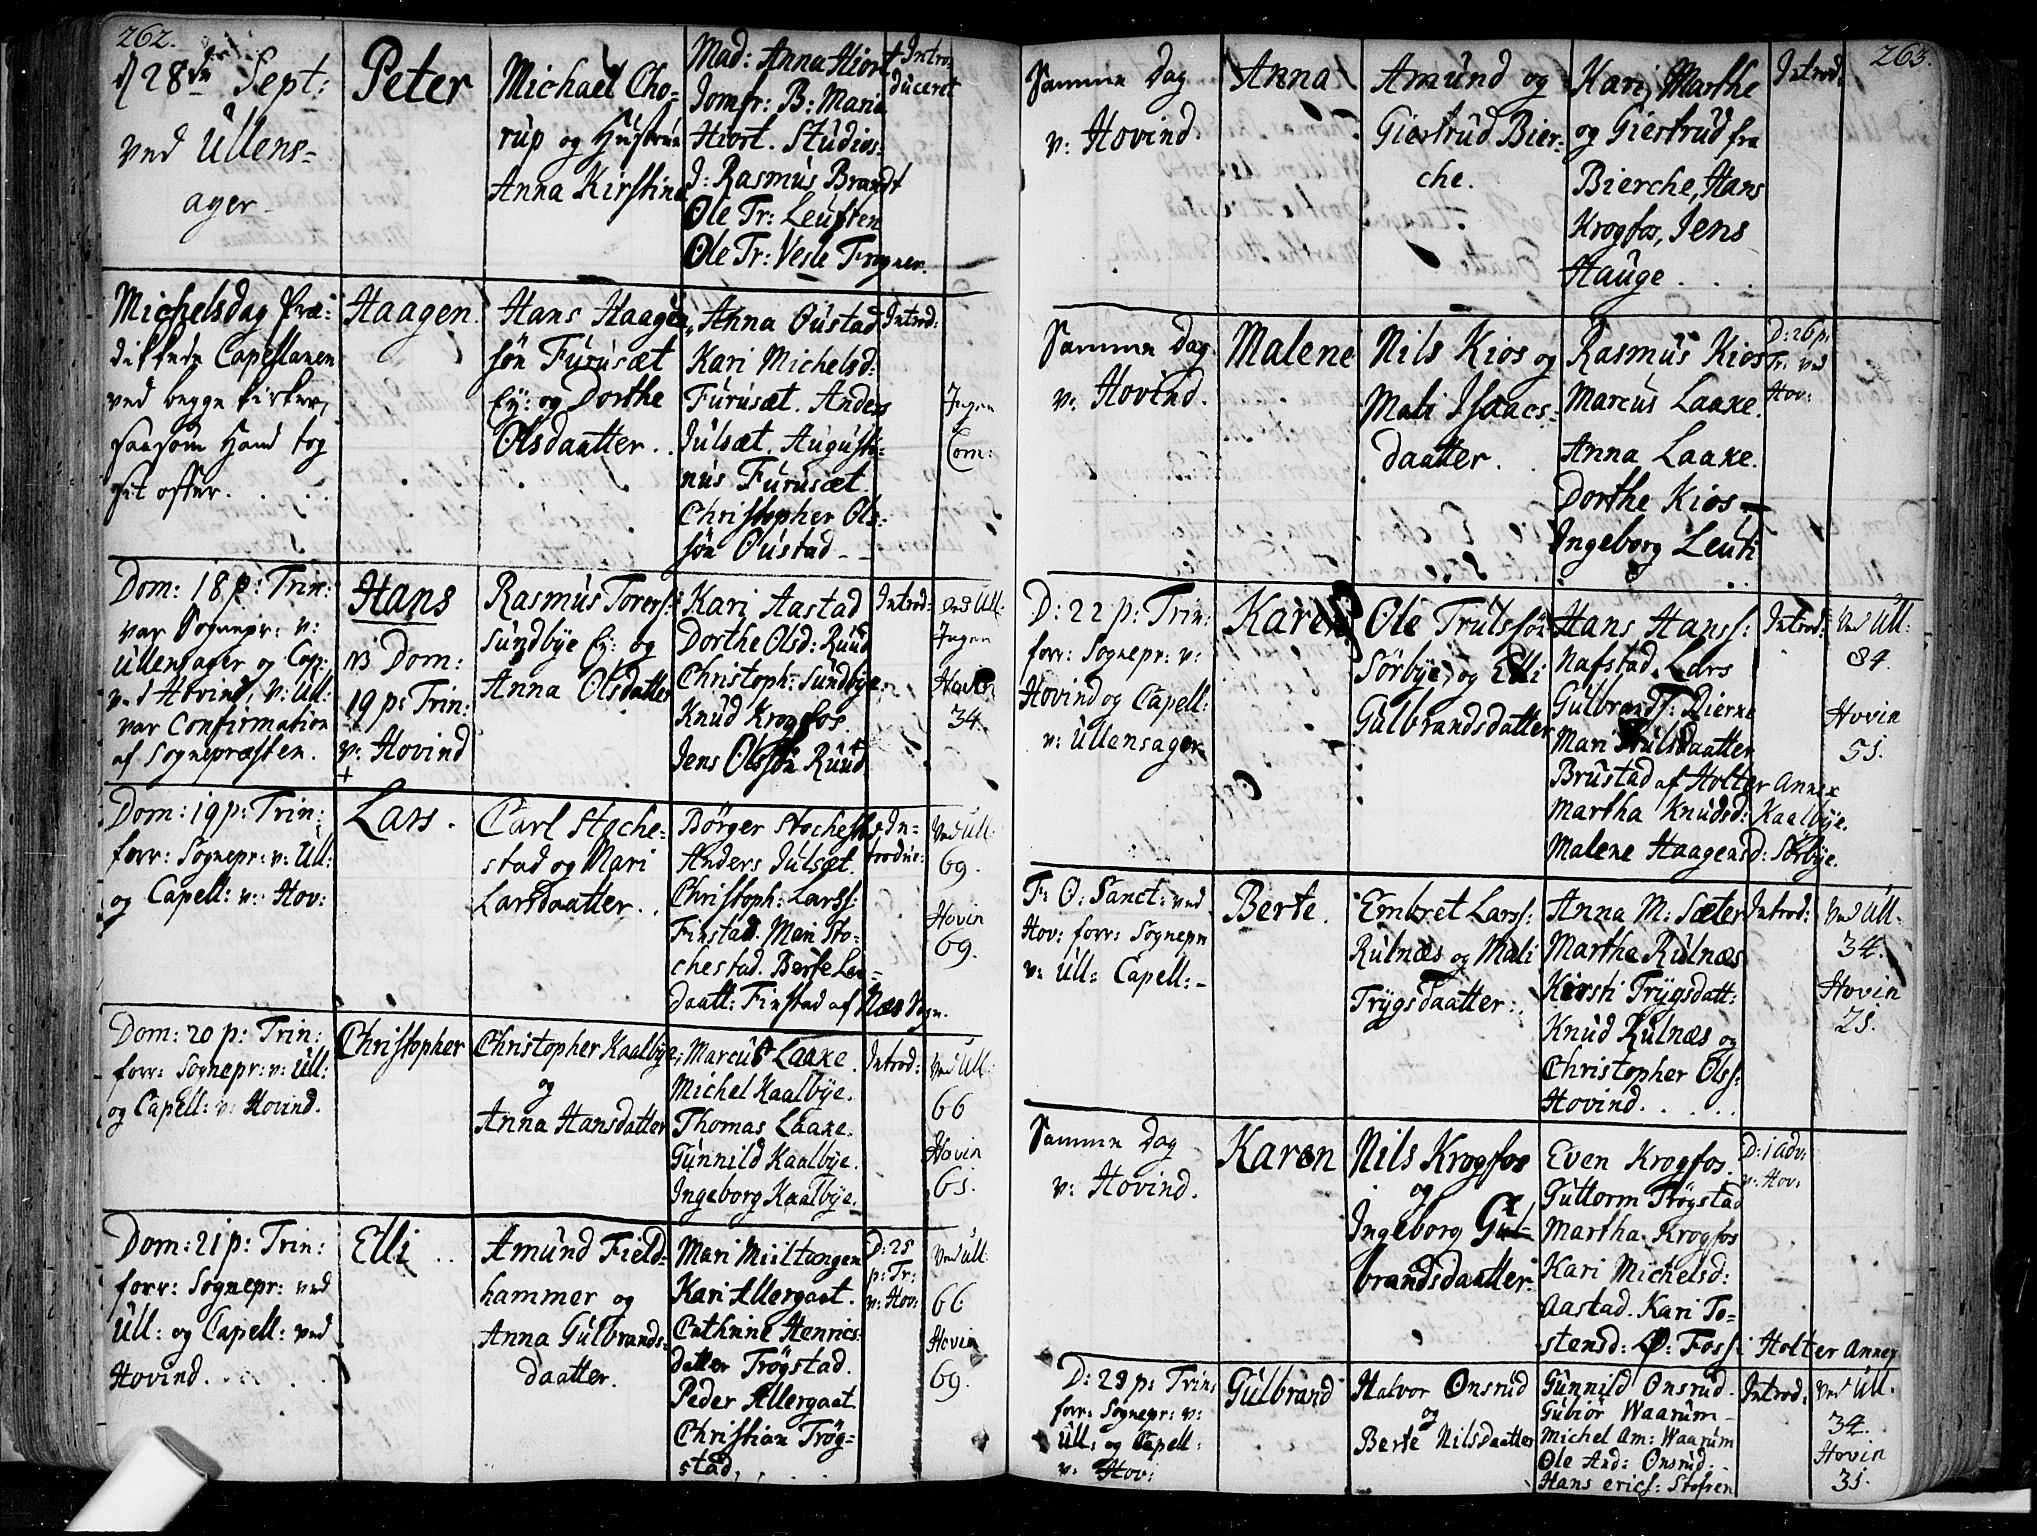 262.
d 28de Sept:
ved Ullens=
ager
Peter
Michael Cho-
rup og Hustrue
Anna Kirstina
Mad: Anna Hiort
Jomfr: B: Maria
Hiort. Studios:
J: Rasmus Brandt
Ole Tr: Leusten
Ole Tr: Vesle Frogner.
Intro
duceret
Michelsdag Præ=
dikede Capellanen
ved begge kirker,
saasom Hand tog
sit offer.
Haagen.
Hans Haagen
søn Furusæt
Ey: og Dorthe
Olsdaatter.
Anna Oustad
Kari Michelsd:
Furusæt. Anders
Julsæt. Augusti=
nus Furusæt.
Christopher Ols=
søn Oustad
Introd:
Ingen
Com:
Dom: 18 p: Trin:
var Sognepr: v:
Ullensager og Cap:
v. d Hovind, v: Ull:
var Confirmation
af Sognepræsten.
Hans
N3 Dom:
19 p: Trin:
v: Hovind
+
Rasmus Torerss:
Sundbye Ey: og
Anna Olsdatter
Kari Aastad
Dorthe Olsd: Ruud
Christoph: Sundbye
Knud Krogfos.
Jens Olssøn Ruud
Introd:
ved Ull:
Ingen
Hovin
34.
Dom: 19 p: Trin:
forr: Sognepr: v: Ull:
og Capell: v: Hov:
Lars.
Carl Stoche=
stad og Mari
Larsdaatter.
Børger Stochestad
Anders Julsæt.
Christoph: Larss:
Finstad. Mari Sto=
chestad. Berte Lars=
daatt: Finstad af Næs Sogn.
In=
troduc:
Ved Ull:
69.
Hovin
69.
Dom: 20 p: Trin:
forr: Sognepr: v: Ull:
og Capell: v: Hovind.
Christopher
Christopher Kaalbye
og
Anna Hansdatter
Marcus Laake.
Michel Kaalbye.
Thomas Laake.
Gunnild Kaalbye.
Ingeborg Kaalbye.
Introd:
Ved Ull:
66
Hovin
65.
Dom: 21 p: Trin:
forr: Sognepr: ved
Ull: og Capell: ved
Hovind.
Elli
Amund Field=
hammer og
Anna Gulbrands=
daatter.
Mari Miiltangen
Kari Allergaat.
Cathrine Henrics=
datter Trøgstad.
Peder Allergaat
Christian Trøg=
stad,
D: 25
p: Tr:
v: Hov:
Ved Ull:
66
Hovin
69.
263.
Samme Dag
v: Hovind.
Anna
Amund og
Giertrud Bier=
che.
Kari, Marthe
og Giertrud fra
Bierche, Hans
Krogfos, Jens
Hauge
Introd:
Samme Dag
v: Hovind.
Malene
Nils Kios og
Mali Isaacs=
daatter.
Rasmus Kios
Marcus Laake.
Anna Laake.
Dorthe Kios
Ingeborg Leuti
D: 26 p:
Tr: ved
Hov:
D: 22 p: Trin:
forr: Sognepr: v:
Hovind og Capell:
v: Ullensager
Karen
Ole Trulssøn
Sørbye, og Elli
Gulbrandsdatter
Hans Hanss:
Nafstad. Lars
Gulbrands: Dierne
Mari Trulsdaatter
Brustad af Holter Annex
Martha Knudsd: Kaalbye.
Malene Haagensd: Sørbye.
Introd:
Ved Ull:
84.
Hovin
55.
F: O: Sanct: ved
Hov: forr: Sognepr
v: Ull: Capell:
Berte.
Embret Larss:
Rulnæs og Mali
Trygsdaatter:
Anna M: Sæter
Martha Rulnæs
Kirsti Trygsdatt:
Knud Rulnæs og
Christopher Olss:
Hovind.
Introd:
Ved Ull.
34.
Hovin
25.
Samme Dag
v: Hovind.
Karen
Nils Krogfos
og
Ingeborg Gul=
brandsdaatter
Even Krogfos.
Guttorm Trøgstad
Martha Krogfos
Kari Michelsd:
Aastad. Kari To=
stensd: Foss: Holter Annex
D: 1 Adv:
v: Hov:
D: 23 p: Trin:
forr: Sognepr: v:
Ull: og Capell:
v: Hov:
Gulbrand
Halvor Onsrud
og
Berte Nilsdaatter
Gunnild Onsrud
Gubiør Waarum
Michel Am: Waarum
Ole And: Onsrud.
Hans erics: Stopen
Introd:
Ved Ull.
34.
Hovin
35.